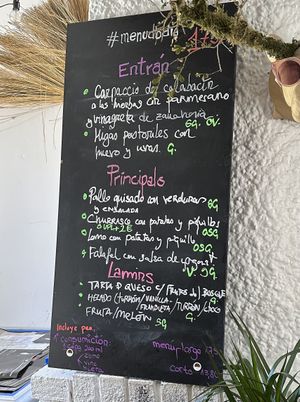 #menudeldia 17'5
Entrán
• Carpaccio de calabacín
a las hierbas con parmesano
y vinagreta de zanahoria
SG. OV.
• Migas pastorales con
huevo y uvas. G.
Principals
• Pollo guisado con verduras
y ensalada SG
• Churrasco con patatas y piquillo
SUPL+2€ OSG
• Lomo con patatas y piquillo
OSG.
• Falafel con salsa de yogurt
V SG
Lamins
• TARTA D QUESO c/ FRUTOS d/ BOSQUE
G
• HELADO (TURRÓN/VAINILLA-
FRUTA/MELÓN SG
Incluye pan
1 consumición
menú largo 17'5
corto 13,80